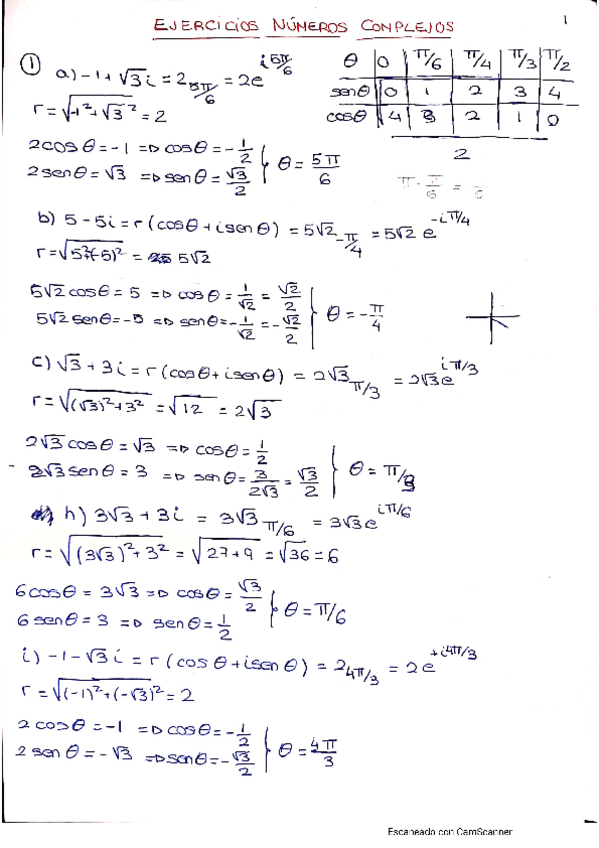 EJERCICIOS NÚMEROS COMPLEJOS
1
① a) -1+√3 i = 2_{5π/6} = 2e^{i5π/6}
r = √(-1²+√3²) = 2
θ | 0 | π/6 | π/4 | π/3 | π/2
senθ | 0 | 1 | 2 | 3 | 4
cosθ | 4 | 3 | 2 | 1 | 0
2
2cosθ = -1 => cosθ = -1/2
2senθ = √3 => senθ = √3/2 } θ = 5π/6
π - π/6 = /6
b) 5-5i = r(cosθ+isenθ) = 5√2_{-π/4} = 5√2 e^{-iπ/4}
r = √(5²+(-5)²) = 5√2
5√2cosθ = 5 => cosθ = 1/√2 = √2/2
5√2senθ = -5 => senθ = -1/√2 = -√2/2 } θ = -π/4
c) √3+3i = r(cosθ+isenθ) = 2√3_{π/3} = 2√3e^{iπ/3}
r = √((√3)²+3²) = √12 = 2√3
2√3cosθ = √3 => cosθ = 1/2
2√3senθ = 3 => senθ = 3/2√3 = √3/2 } θ = π/3
h) 3√3+3i = 3√3_{π/6} = 3√3e^{iπ/6}
r = √((3√3)²+3²) = √(27+9) = √36 = 6
6cosθ = 3√3 => cosθ = √3/2
6senθ = 3 => senθ = 1/2 } θ = π/6
i) -1-√3 i = r(cosθ+isenθ) = 2_{4π/3} = 2e^{+i4π/3}
r = √((-1)²+(-√3)²) = 2
2cosθ = -1 => cosθ = -1/2
2senθ = -√3 => senθ = -√3/2 } θ = 4π/3
Escaneado con CamScanner